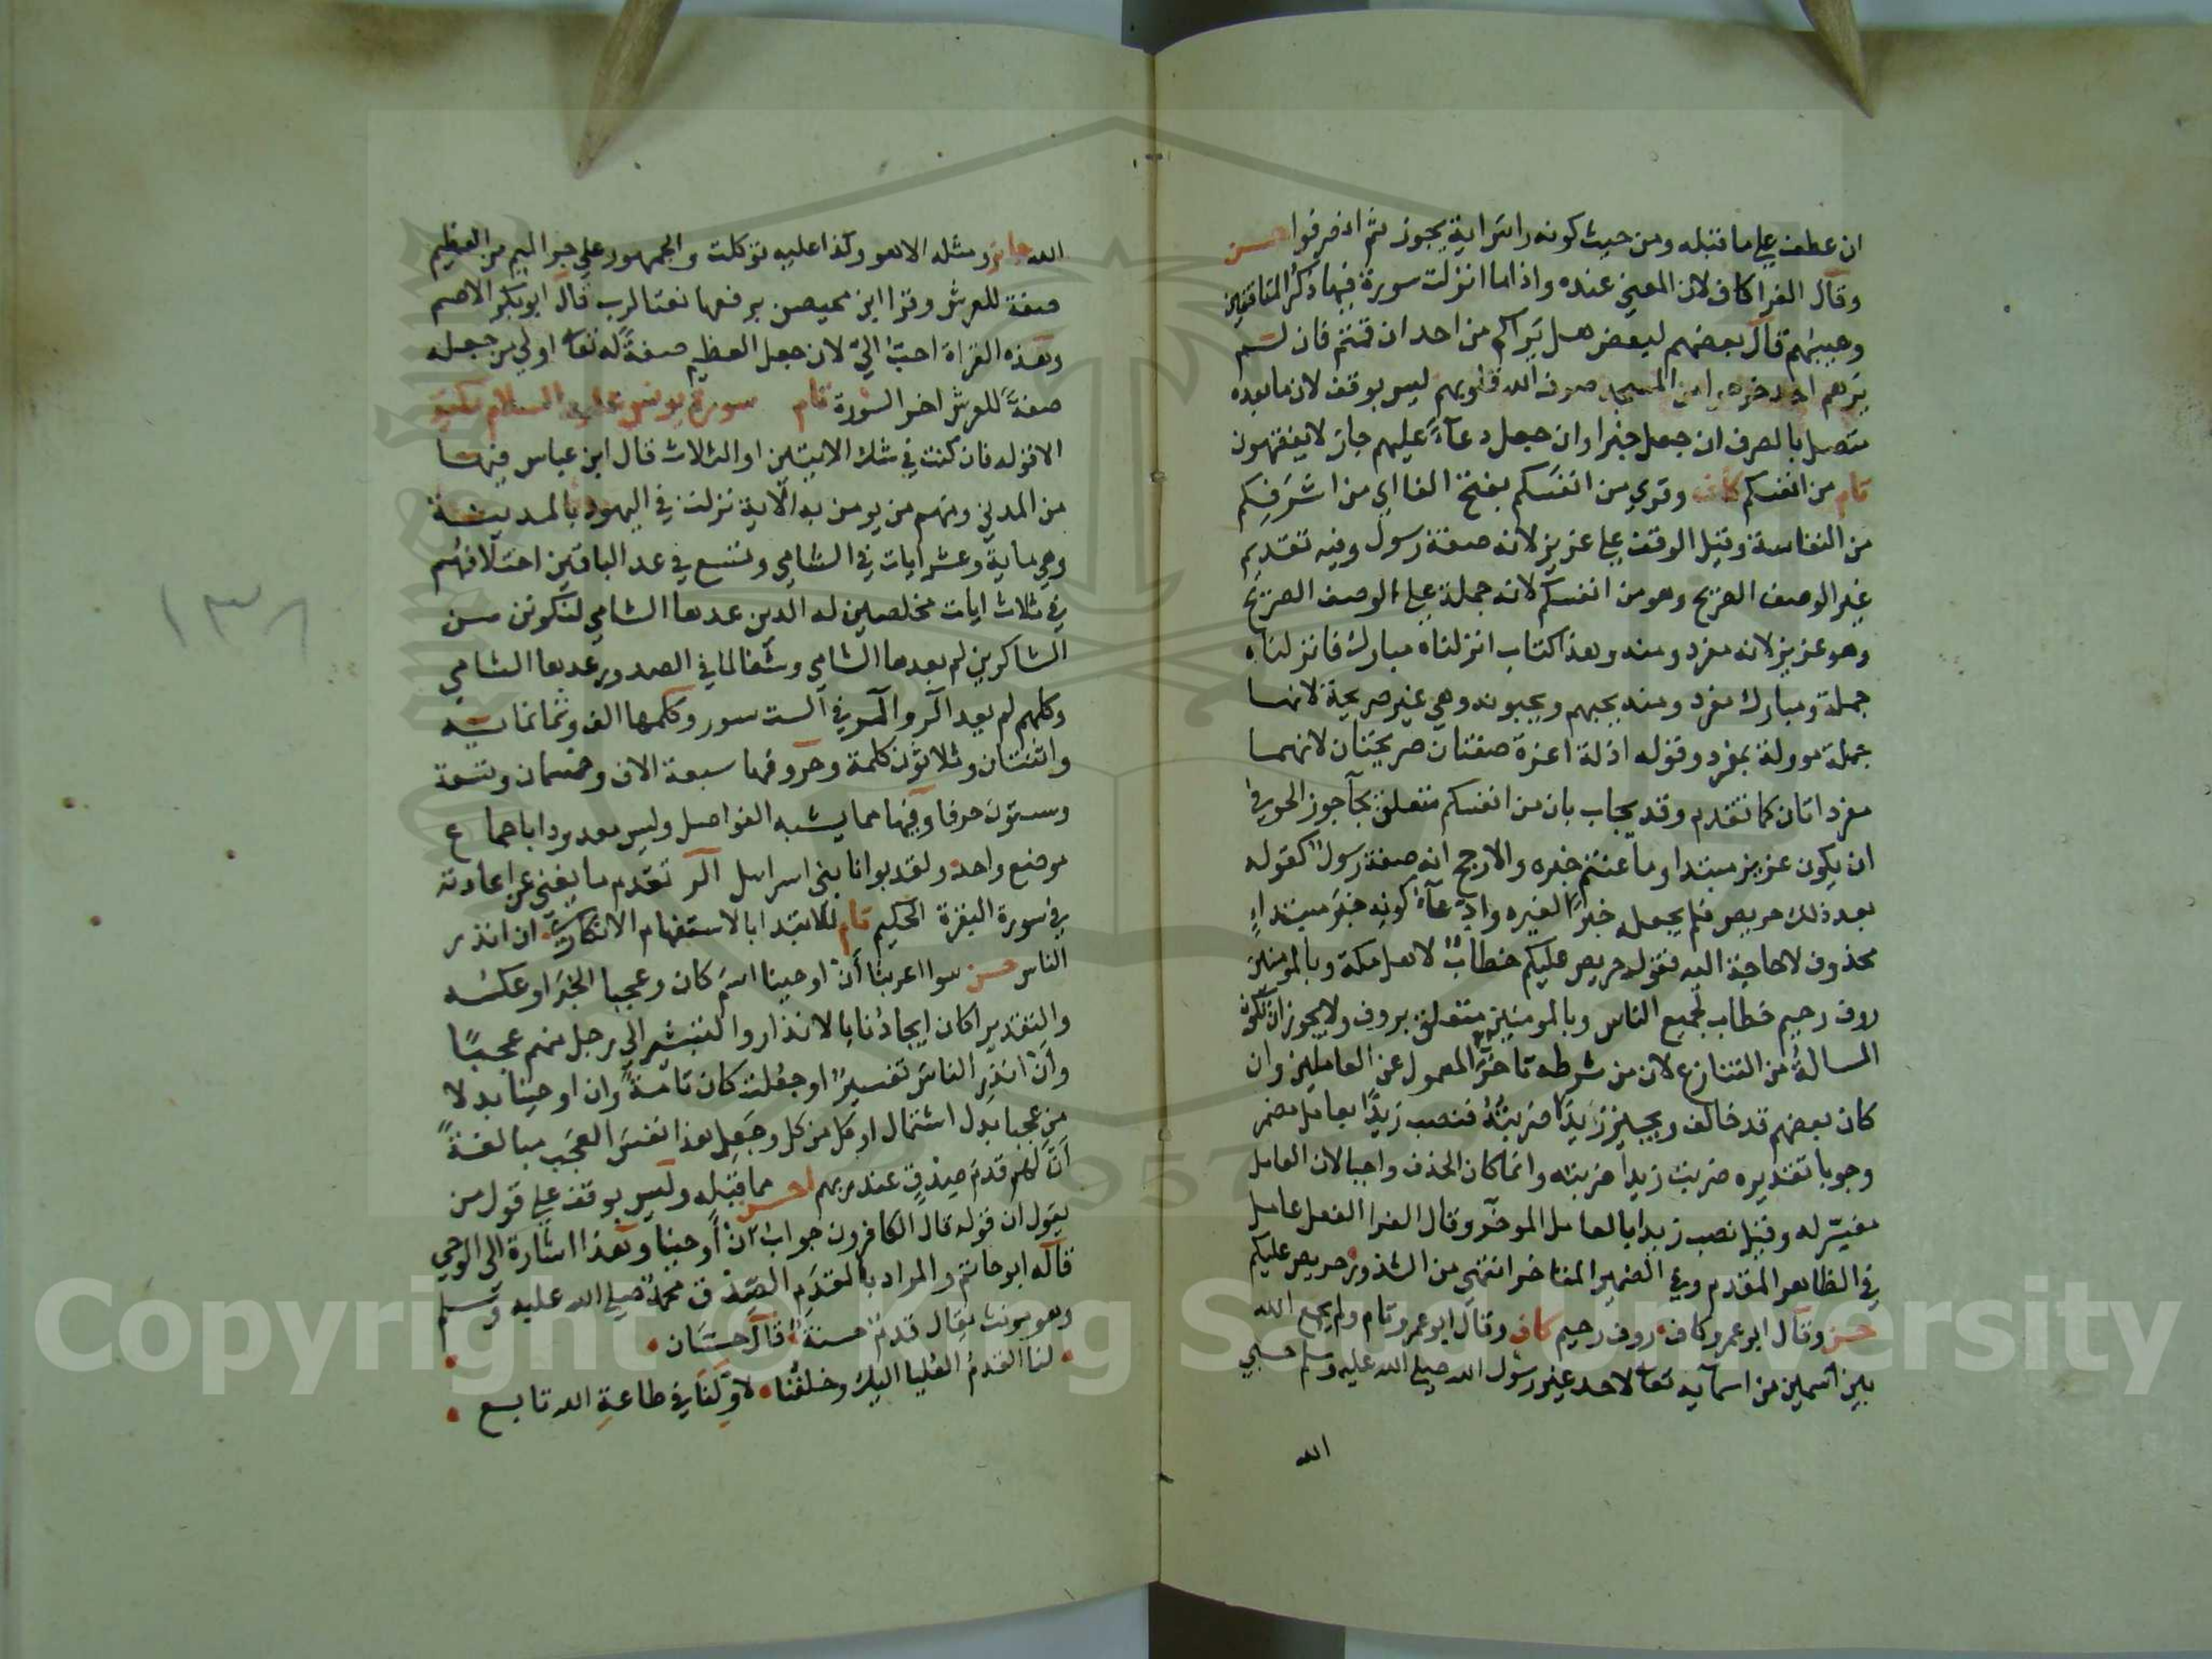 ان عطف على ما قبله ومن حيث كونه راس اية يجوز ثم انصرفوا حسن
وقال الفرا كاف لان المعنى عنده واذا ما انزلت سورة فيها ذكر المنافقين
وعيبهم قال بعضهم لبعض هل يراكم من احد ان قمتم فان لم
يرهم احد خرجوا من المسجد صرف الله قلوبهم ليس بوقف لان ما بعده
متصل بالصرف ان جعل خبرا وان جعل دعآءً عليهم جاز لا يفقهون
تام من انفسكم كاف وقري من انفسكم بفتح الفا اي من اشرفكم
من النفاسة وقيل الوقف على عزيز لانه صفة رسول وفيه تقديم
غير الوصف الصريح وهو من انفسكم لانه جملة على الوصف الصريح
وهو عزيز لانه مفرد ومنه وهذا كتاب انزلناه مبارك فانزلناه
جملة ومبارك مفرد ومنه يحبهم ويحبونه وهي غير صريحة لانها
جملة موولة بمفرد وقوله اذلة اعزة صفتان صريحتان لانهما
مفردتان كما تقدم وقد يجاب بان من انفسكم متعلق بجآ وجوز الحوفي
ان يكون عزيز مبتدا وما عنتم خبره والارجح انه صفة رسول كقوله
بعد ذلك حريص فلم يجعل خبرًا لغيره وادّعآء كونه خبر مبتداءٍ
محذوف لا حاجة اليه فقوله حريص عليكم خطابٌ لاهل مكة وبالمومنين
روف رحيم خطاب لجميع الناس وبالمومنين متعلق بروف ولا يجوز ان تكون
المسالة من التنازع لان من شرطه تاخر المعمول عن العاملين وان
كان بعضهم قد خالف ويجيز زيدًا ضربته فنصب زيدًا بعامل مضمر
وجوبا تقديره ضربت زيدا ضربته وانما كان الحذف واجبا لان العامل
مفسر له وقيل نصب زيدا بالعامل الموخر وقال الفرا الفعل عامل
في الظاهر المقدم وفي الضمير المتاخر انتهى من الشذور حريص عليكم
حسن وقال ابو عمرو كاف روف رحيم كاف وقال ابو عمرو تام ولم يجمع الله
بين اسمين من اسمآيه تعالى لاحد غير رسول الله صلى الله عليه وسلم حسبي
الله
الله جائز ومثله الا هو وكذا عليه توكلت والجمهور على جر الميم من العظيم
صفة للعرش وقرا ابن محيصن برفعها نعتا للرب قال ابو بكر الاصم
وهذه القراة احبّ اليّ لان جعل العظيم صفةً له تعالى اولي من جعله
صفةً للعرش اخر السورة تام سورة يونس عليه السلام مكية
الا قوله فان كنت في شك الايتين او الثلاث قال ابن عباس فيها
من المدني ومنهم من يومن به الاية نزلت في اليهود بالمدينة
وهي ماية وعشر ايات في الشامي وتسع في عد الباقين اختلافهم
في ثلاث ايات مخلصين له الدين عدها الشامي لنكونن من
الشاكرين لم يعدها الشامي وشفا لما في الصدور عدها الشامي
وكلهم لم يعد الر والمر في الست سور وكلمها الف وثمانماية
واثنتان وثلاثون كلمة وحروفها سبعة الاف وخمسمان وسبعة
وستون حرفا وفيها مما يشبه الفواصل وليس معدودا باجماع
موضع واحد ولقد بوانا بني اسرايل الر تقدم ما يغني عن اعادته
في سورة البقرة الحكيم تام للابتدا بالاستفهام الانكاري ان انذر
الناس حسن سوا اعربنا أنْ اوحينا اسم كان وعجبا الخبر او عكسه
والتقدير اكان ايحاؤنا بالانذار والتبشير الى رجل منهم عجبًا
وأنْ انذر الناس تفسيرًا او جعلت كان تامّةً وان اوحينا بدلا
من عجبا بدل اشتمال او كل من كل وجعل هذا نفس العجب مبالغةً
أنّ لهم قدم صدق عند ربهم احسن مما قبله وليس بوقف على قول من
يقول ان قوله قال الكافرون جواب أنْ أوحينا وهذا اشارة الى الوحي
قاله ابو حاتم والمراد بالقدم الصدق محمد صلى الله عليه وسلم
وهو مونث يقال قدمٌ حسنةٌ قال حسّان
لنا القدمُ العُليا اليك وخلفُنا لاوّلنا في طاعةِ الله تابع
١٣٨
Copyright © King Saud University
1957